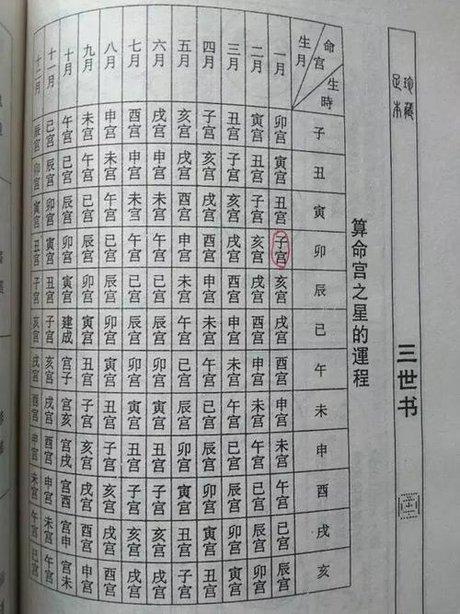 珍藏
足本
三世书
算命宫之星的運程
命宫
生時
生月
子 丑 寅 卯 辰 巳 午 未 申 酉 戌 亥
一月 卯宫 寅宫 丑宫 子宫 亥宫 戌宫 酉宫 申宫 未宫 午宫 巳宫 辰宫
二月 寅宫 丑宫 子宫 亥宫 戌宫 酉宫 申宫 未宫 午宫 巳宫 辰宫 卯宫
三月 丑宫 子宫 亥宫 戌宫 酉宫 申宫 未宫 午宫 巳宫 辰宫 卯宫 寅宫
四月 子宫 亥宫 戌宫 酉宫 申宫 未宫 午宫 巳宫 辰宫 卯宫 寅宫 丑宫
五月 亥宫 戌宫 酉宫 申宫 未宫 午宫 巳宫 辰宫 卯宫 寅宫 丑宫 子宫
六月 戌宫 申宫 未宫 午宫 巳宫 辰宫 卯宫 寅宫 丑宫 子宫 亥宫 戌宫
七月 酉宫 申宫 未宫 午宫 巳宫 辰宫 卯宫 寅宫 丑宫 子宫 亥宫 戌宫
八月 申宫 未宫 午宫 巳宫 辰宫 卯宫 寅宫 丑宫 子宫 亥宫 戌宫 酉宫
九月 未宫 午宫 巳宫 辰宫 卯宫 寅宫 丑宫 子宫 亥宫 戌宫 酉宫 申宫
十月 午宫 巳宫 辰宫 卯宫 寅宫 建成 宫子 宫亥 宫戌 宫酉 宫申 宫未
十一月 巳宫 辰宫 卯宫 寅宫 丑宫 子宫 亥宫 戌宫 酉宫 申宫 未宫 午宫
十二月 辰宫 卯宫 寅宫 丑宫 子宫 亥宫 戌宫 酉宫 申宫 未宫 午宫 巳宫